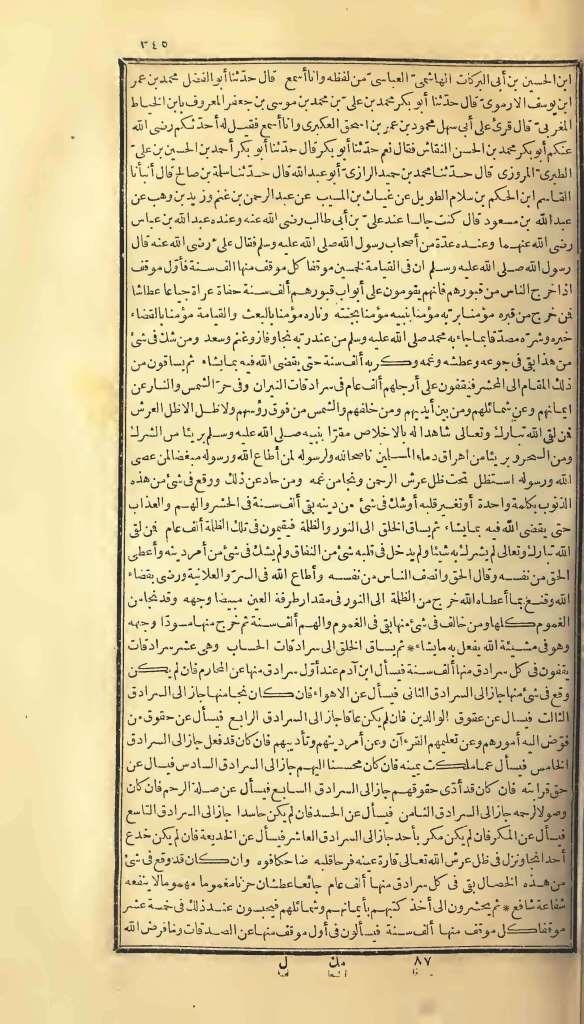 ٣٤٥
ابن الحسين بن أبى البركات الهاشمى العباسى من لفظه وانا أسمع قال حدّثنا أبو الفضل محمد بن عمر
ابن يوسف الارموى قال حدّثنا أبو بكر محمد بن على بن محمد بن موسى بن جعفر المعروف بابن الخياط
المغربى قال قرئ على أبى سهل محمود بن عمر بن اسحق العكبرى وانا أسمع فقيل له أحدّثكم رضى الله
عنكم أبو بكر محمد بن الحسن النقاش فقال نعم حدّثنا أبو بكر قال حدّثنا أبو بكر أحمد بن الحسين بن على
الطبرى المروزى قال حدّثنا محمد بن حميد الرازى أبو عبد الله قال حدّثنا سلمة بن صالح قال أنبأنا
القاسم ابن الحكم بن سلام الطويل عن غياث بن المسيب عن عبد الرحمن بن غنم وزيد بن وهب عن
عبد الله بن مسعود قال كنت جالسا عند على بن أبى طالب رضى الله عنه وعنده عبد الله بن عباس
رضى الله عنهما وعنده عدّة من أصحاب رسول الله صلى الله عليه وسلم فقال على رضى الله عنه قال
رسول الله صلى الله عليه وسلم ان فى القيامة لخمسين موقفا كل موقف منها الف سنة فأوّل موقف
اذا خرج الناس من قبورهم فانهم يقومون على أبواب قبورهم ألف سنة حفاة عراة جياعا عطاشا
فمن خرج من قبره مؤمنا بربه مؤمنا بنبيه مؤمنا بجنته وناره مؤمنا بالبعث والقيامة مؤمنا بالقضاء
خيره وشرّه مصدّقا بما جاء به محمد صلى الله عليه وسلم من عند ربه نجا وفاز وغنم وسعد ومن شك فى شئ
من هذا بقى فى جوعه وعطشه وغمه وكربه ألف سنة حتى يقضى الله فيه بما يشاء ثم يساقون من
ذلك المقام الى المحشر فيقفون على أرجلهم ألف عام فى سرادقات النيران وفى حرّ الشمس والنار عن
ايمانهم وعن شمائلهم ومن بين أيديهم ومن خلفهم والشمس من فوق رؤسهم ولا ظل الا ظل العرش
فمن لقى الله تبارك وتعالى شاهدا له بالاخلاص مقرّا بنبيه صلى الله عليه وسلم بريئا من الشرك
ومن السحر وبريئا من اهراق دماء المسلمين ناصحا لله ولرسوله محبا لمن أطاع الله ورسوله مبغضا لمن عصى
الله ورسوله استظل تحت ظل عرش الرحمن ونجا من غمه ومن حاد عن ذلك ووقع فى شئ من هذه
الذنوب بكلمة واحدة أو تغير قلبه أو شك فى شئ من دينه بقى ألف سنة فى الحشر والهم والعذاب
حتى يقضى الله فيه بما يشاء ثم يساق الخلق الى النور والظلمة فيقيمون فى تلك الظلمة ألف عام فمن لقى
الله تبارك وتعالى لم يشرك به شيئا ولم يدخل فى قلبه شئ من النفاق ولم يشك فى شئ من أمر دينه وأعطى
الحق من نفسه وقال الحق وانصف الناس من نفسه وأطاع الله فى السرّ والعلانية ورضى بقضاء
الله وقنع بما أعطاه الله خرج من الظلمة الى النور فى مقدار طرفة العين مبيضا وجهه وقد نجا من
الغموم كلها ومن خالف فى شئ منها بقى فى الغموم والهم ألف سنة ثم خرج منها مسودّا وجهه
وهو فى مشيئة الله يفعل به ما يشاء * ثم يساق الخلق الى سرادقات الحساب وهى عشر سرادقات
يقفون فى كل سرادق منها ألف سنة فيسأل ابن آدم عند أوّل سرادق منها عن المحارم فان لم يكن
وقع فى شئ منها جاز الى السرادق الثانى فيسأل عن الاهواء فان كان نجا منها جاز الى السرادق
الثالث فيسأل عن عقوق الوالدين فان لم يكن عاقا جاز الى السرادق الرابع فيسأل عن حقوق من
فوّض اليه أمورهم وعن تعليمهم القرءآن وعن أمر دينهم وتأديبهم فان كان قد فعل جاز الى السرادق
الخامس فيسأل عما ملكت يمينه فان كان محسنا اليهم جاز الى السرادق السادس فيسأل عن
حق قرابته فان كان قد أدّى حقوقهم جاز الى السرادق السابع فيسأل عن صلة الرحم فان كان
وصولا لرحمه جاز الى السرادق الثامن فيسأل عن الحسد فان لم يكن حاسدا جاز الى السرادق التاسع
فيسأل عن المكر فان لم يكن مكر بأحد جاز الى السرادق العاشر فيسأل عن الخديعة فان لم يكن خدع
أحدا نجا ونزل فى ظل عرش الله تعالى قارة عينه فرحا قلبه ضاحكا فوه وان كان قد وقع فى شئ
من هذه الخصال بقى فى كل سرادق منها ألف عام جائعا عطشان حزنا مغموما مهموما لا ينفعه
شفاعة شافع * ثم يحشرون الى أخذ كتبهم بأيمانهم وشمائلهم فيحبسون عند ذلك فى خمسة عشر
موقفا كل موقف منها ألف سنة فيسألون فى أول موقف منها عن الصدقات وما فرض الله
٨٧ مك ل